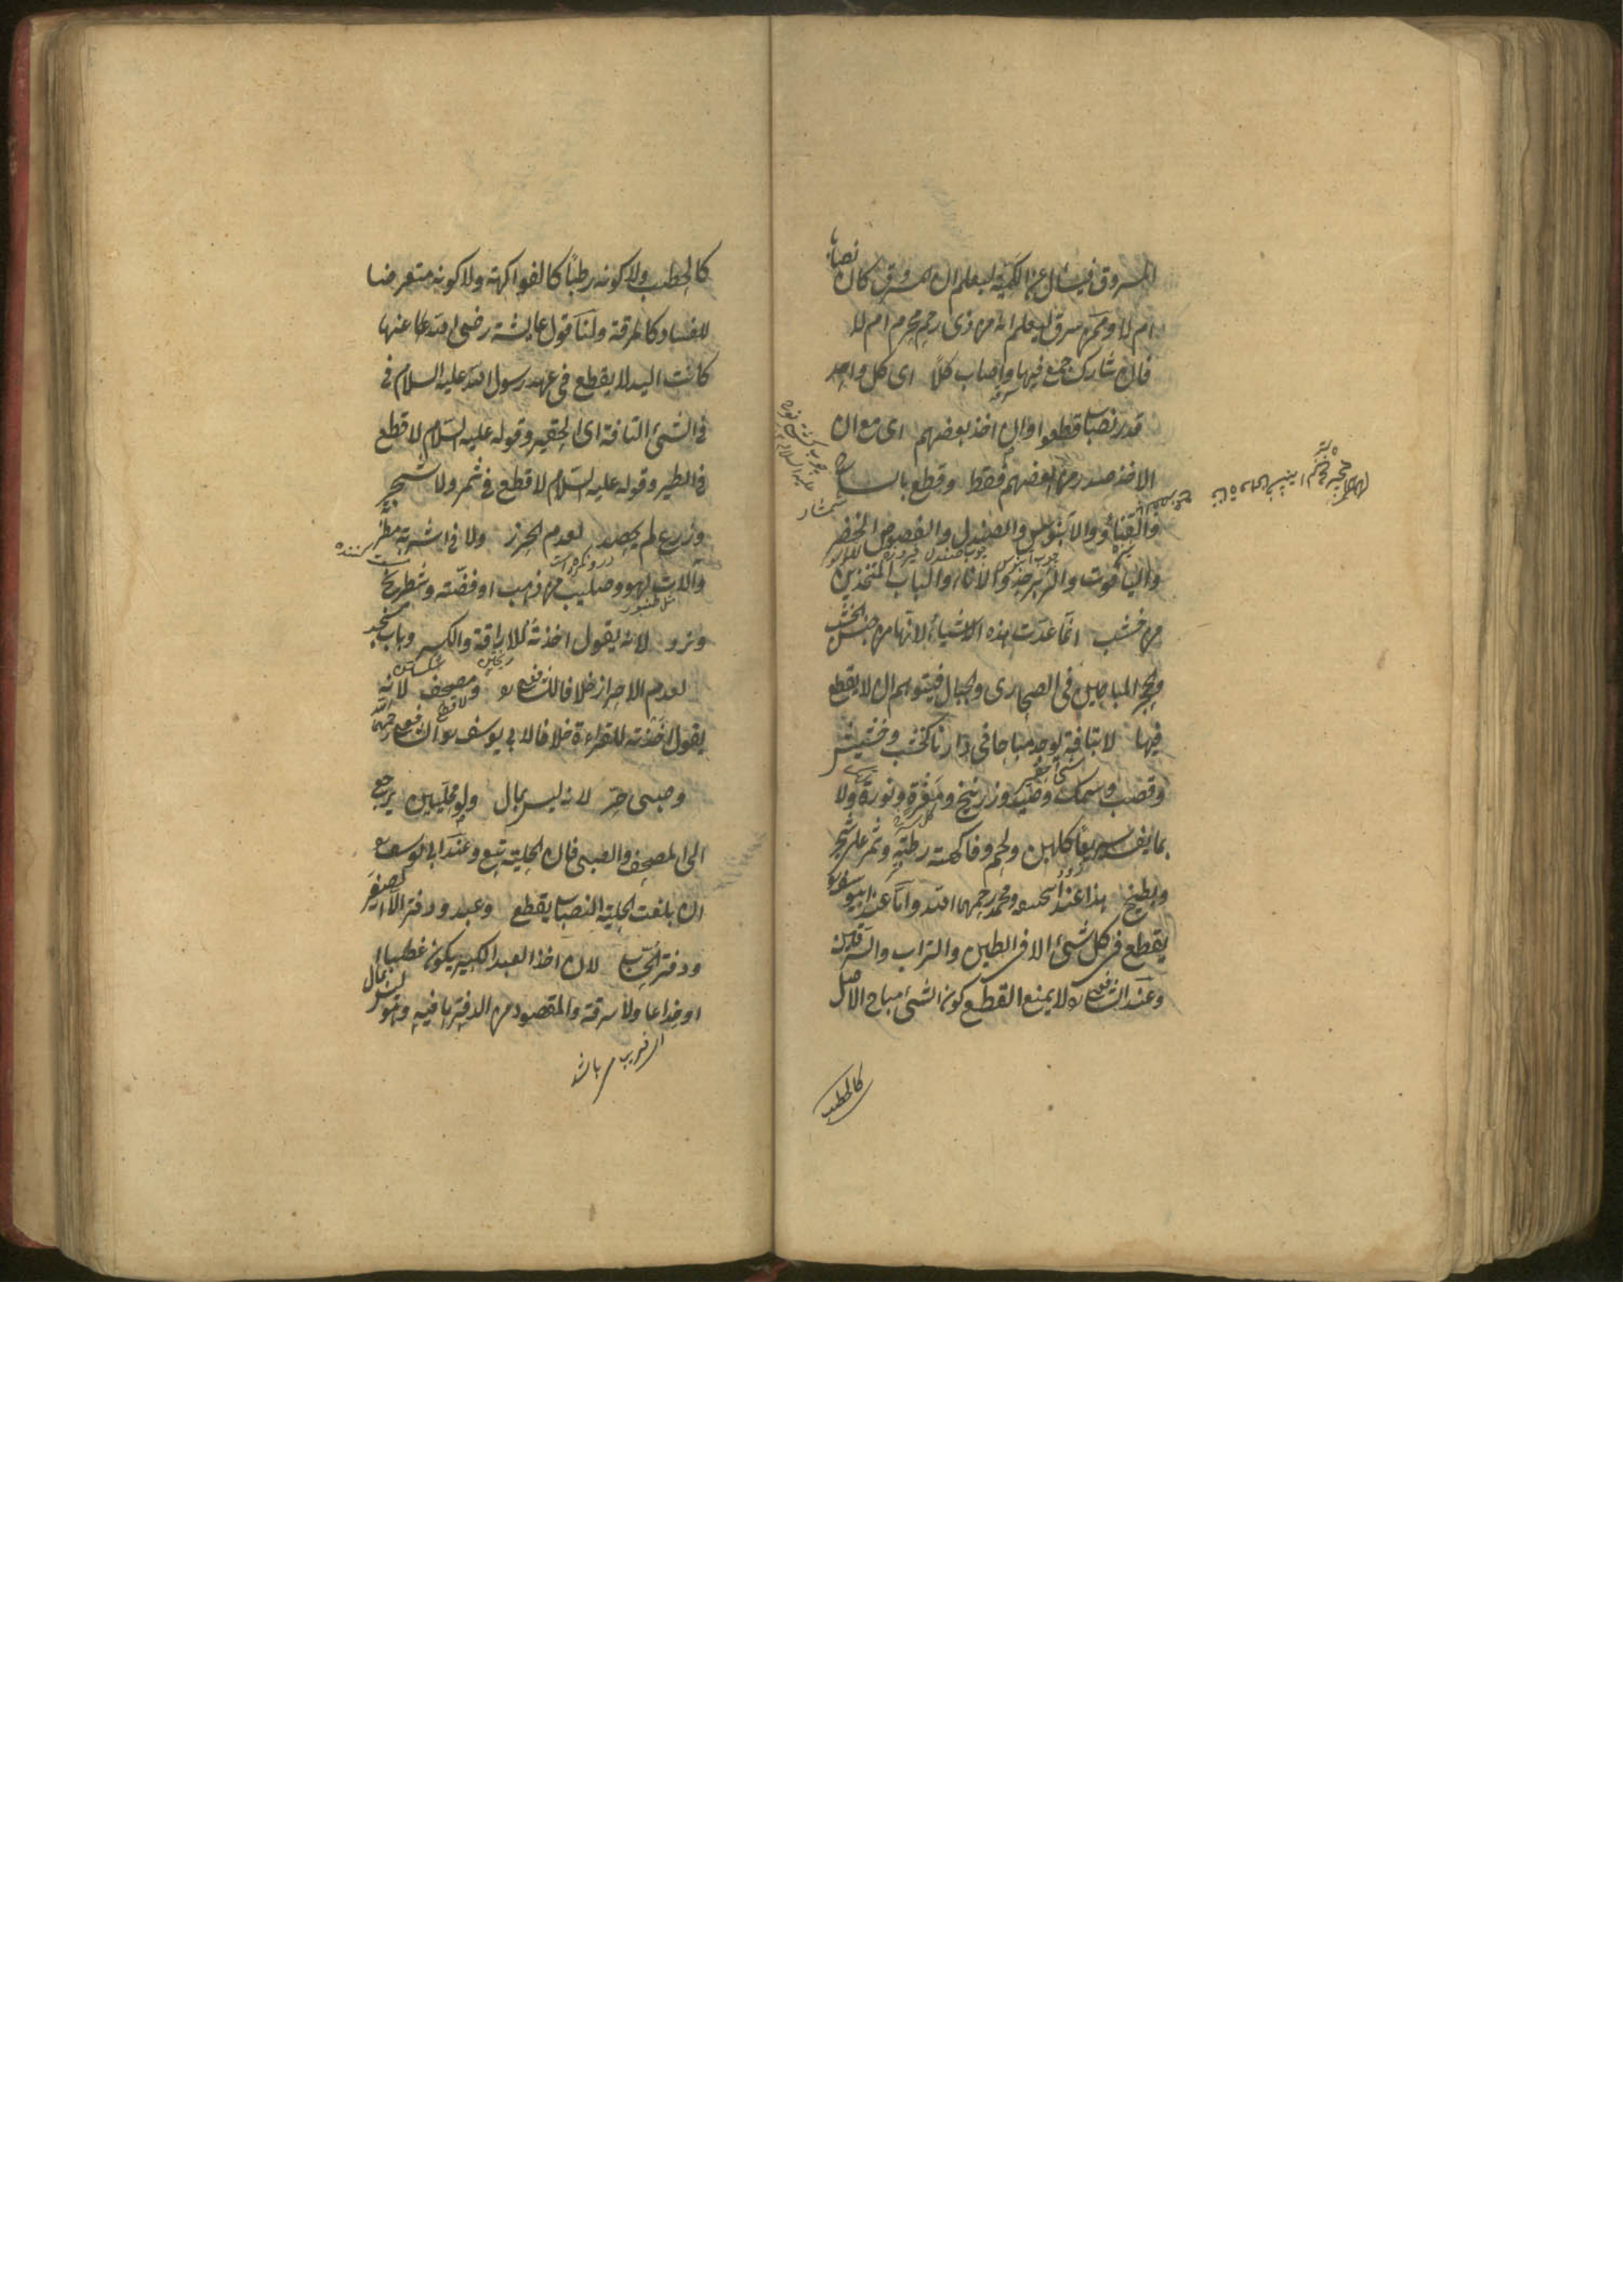 المسروق فيسأل عن الكمية ليعلم ان المسروق كان نصابا
ام لا وممن سرق ليعلم انه من ذى رحم محرم ام لا
فان شارك جمع فيها واصاب كلا اى كل واحد
قدر نصاب قطعوا وان اخذ بعضهم اى مع ان
الاخذ صدر من بعضهم فقط وقطع بالساج
والقنا والابنوس والصندل والفصوص الخضر
والياقوت والزبرجد والاناء والباب المتخذين
من خشب انما عدت هذه الاشياء لانها من جنس الخشب
والحجر المباحين فى الصحارى والجبال فيتوهم ان لا يقطع
فيها لا بتافه يوجد مباحا فى دارنا كخشب وحشيش
وقصب وسمك وصيد وزرنيخ ومغرة ونورة ولا
بما يفسد سريعا كلبن ولحم وفاكهة رطبة وثمر على شجر
وبطيخ هذا عند ابيحنيفه ومحمد رحمهما الله واما عند ابيوسف
يقطع فى كل شئ الا فى الطين والتراب والسرقين
وعند الشافعى لا يمنع القطع كون الشئ مباح الاصل
كالحطب
كالحطب ولا كونه رطبا كالفواكهة ولا كونه متعرضا
للفساد كالمرقة ولنا قول عايشة رضى الله تعالى عنها
كانت اليد لا يقطع فى عهد رسول الله عليه السلام فى
فى الشئ التافة اى الحقير وقوله عليه السلام لا قطع
فى الطير وقوله عليه السلام لا قطع فى ثمر ولا شجر
وزرع لم يحصد لعدم الحرز ولا فى اشربة مطربة
والات لهو وصليب من ذهب او فضة وشطرنج
ونرد لانه يقول اخذته للاراقة والكسر وباب مسجد
لعدم الاحراز خلافا للشافعى ومصحف لانه
يقول اخذته للقراءة خلافا لابى يوسف والشافعى رحمهما الله
وصبى حر لانه ليس بمال ولو محليين يرجع
الى المصحف والصبى فان الحلية تبع وعند ابى يوسف
ان بلغت الحلية النصاب يقطع وعبد ودفتر الا الصغير
ودفتر الحساب لان اخذ العبد الكبير يكون غصبا
او خداعا ولا سرقة والمقصود من الدفتر ما فيه وهو ليس بمال